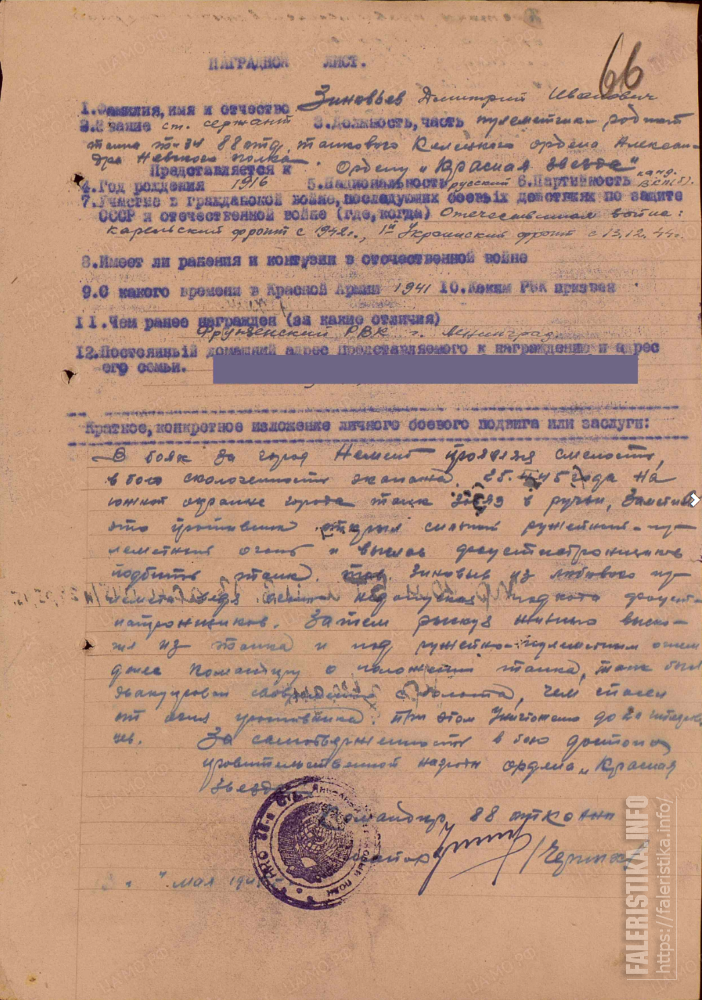 66
НАГРАДНОЙ ЛИСТ.
1.Фамилия,имя и отчество Зиновьев Дмитрий Иванович
2.Звание ст. сержант 3.Должность,часть пулеметчик-радист
танка Т-34 88 отд. танкового Келецкого ордена Алексан-
дра Невского полка
Представляется к Ордену "Красная звезда"
4.Год рождения 1916 5.Национальность русский 6.Партийность канд. ВКП(б).
7.Участие в гражданской войне,последующих боевых действиях по защите
СССР и отечественной войне (где,когда) Отечественная война:
Карельский фронт с 1942г., 1й Украинский фронт с 13.12.44г.
8.Имеет ли ранения и контузии в отечественной войне
9.С какого времени в Красной Армии 1941 10.Каким РВК призван
11.Чем ранее награжден (за какие отличия)
Фрунзенский РВК г. Ленинград
12.Постоянный домашний адрес представляемого к награждению и адрес
его семьи.
Краткое,конкретное изложение личного боевого подвига или заслуги:
В боях за город проявил смелость,
в бою экипажа. года на
южной окраине города танк в ручье, Заметив
это противник открыл сильный ружейно-пу-
леметный огонь и выслал
подбить танк. тов. Зиновьев из лобового пу-
лемета
Затем рискуя жизнью выско-
чил из танка и под ружейно-пулеметным огнем
донес командиру о положении танка, танк был
эвакуирован болота, чем спасен
от огня противника. При этом уничтожено до 20
цев. За самоотверженность в бою достоин
правительственной награды ордена "Красная
Звезда"
Командир 88
мая
FALERISTIKA.INFO
https://faleristika.info/